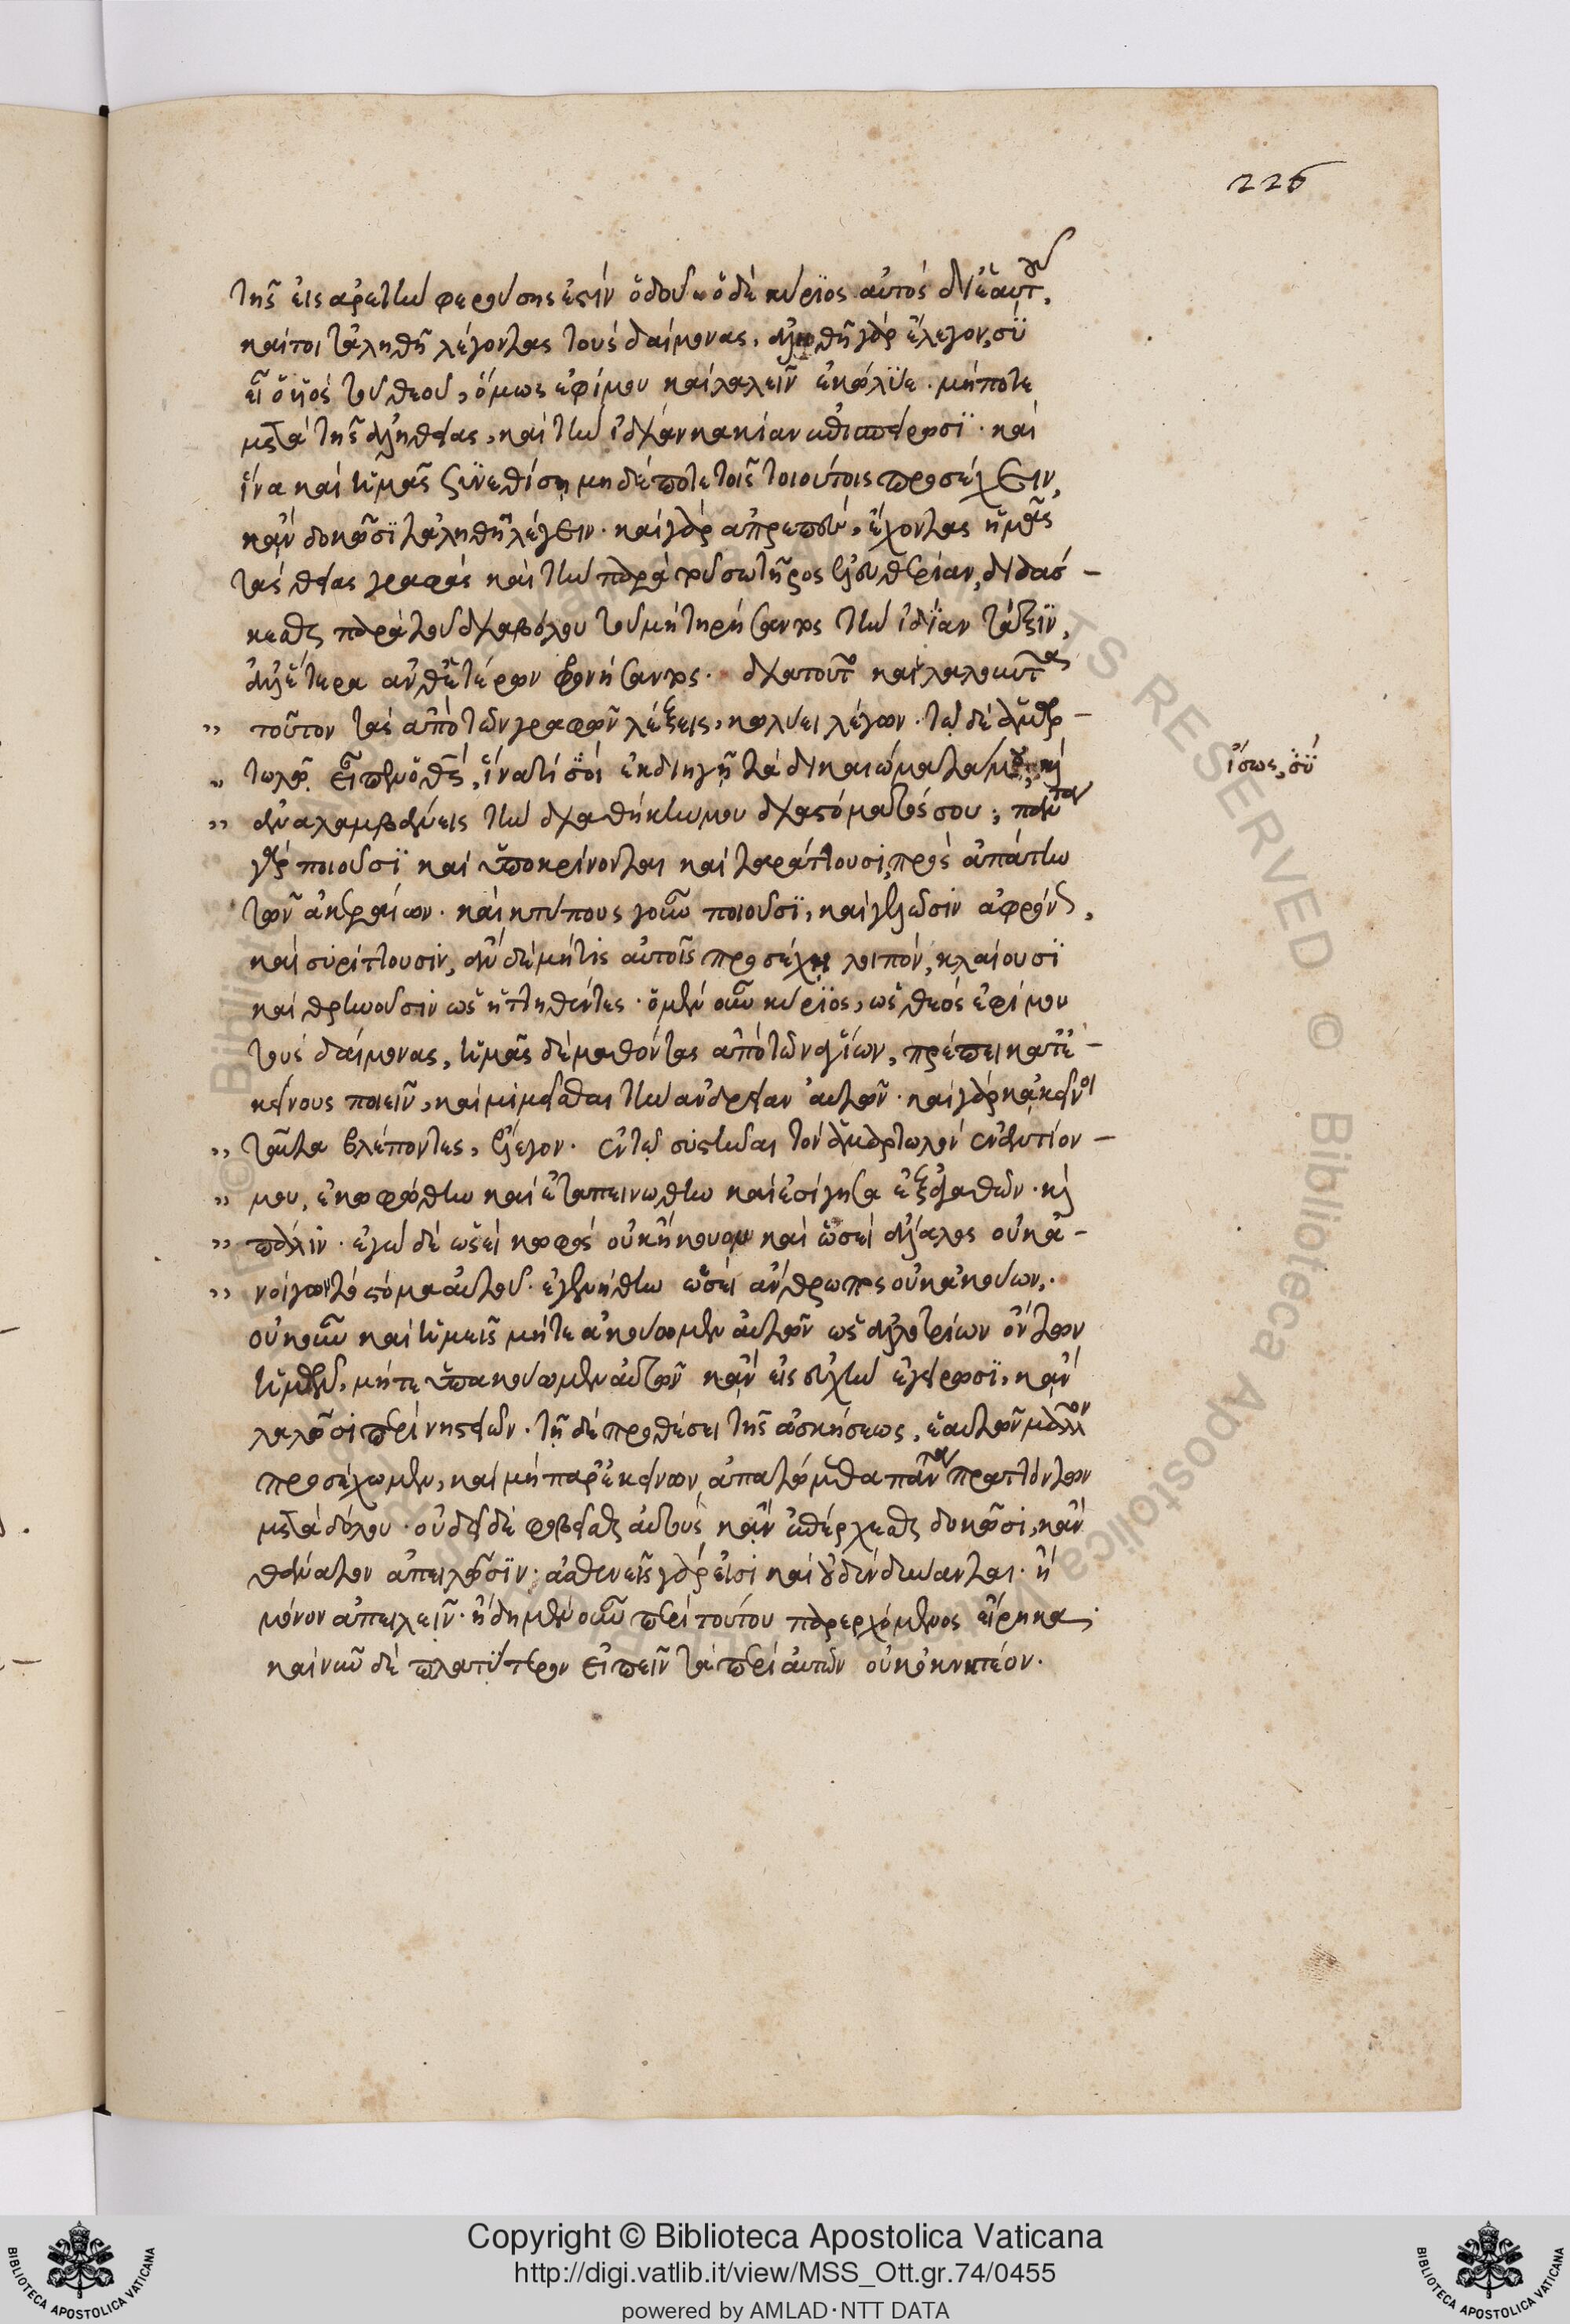 226
τῆς εἰς ἀρετὴν φερούσης ἐστὶν ὁδοῦ. ὁ δὲ κύριος αὐτὸς δι' ἑαυτοῦ,
καίτοι τἀληθῆ λέγοντας τοὺς δαίμονας, ἀληθῆ γὰρ ἔλεγον, σὺ
εἶ ὁ υἱὸς τοῦ θεοῦ, ὅμως ἐφίμου καὶ λαλεῖν ἐκώλυε. μήποτε
μετὰ τῆς ἀληθείας, καὶ τὴν ἰδίαν κακίαν ἐπισπείρωσι. καὶ
ἵνα καὶ ἡμᾶς συνεθίσῃ μηδέποτε τοῖς τοιούτοις προσέχειν,
κἂν δοκῶσι τἀληθῆ λέγειν. καὶ γὰρ ἀπρεπὲς, ἔχοντας ἡμᾶς
τὰς θείας γραφὰς καὶ τὴν παρὰ τοῦ σωτῆρος ἐλευθερίαν, διδάσ-
κεσθαι παρὰ τοῦ διαβόλου τοῦ μὴ τηρήσαντος τὴν ἰδίαν τάξιν,
ἀλλ' ἕτερα ἀνθ' ἑτέρων φρονήσαντος. διὰ τοῦτο καὶ λαλοῦντα
" τοῦτον τὰς ἀπὸ τῶν γραφῶν λέξεις, κωλύει λέγων. τῷ δὲ ἁμαρ-
" τωλῷ εἶπεν ὁ θεὸς, ἵνα τί σοὶ ἐκδιηγῇ τὰ δικαιώματά μου, καὶ
ἴσως, σὺ
" ἀναλαμβάνεις τὴν διαθήκην μου διὰ στόματός σου; πάντα
γὰρ ποιοῦσι καὶ ὑποκρίνονται καὶ ταράττουσι, πρὸς ἀπάτην
τῶν ἀκεραίων. καὶ κτύπους γοῦν ποιοῦσι, καὶ γελῶσιν ἀφρόνως,
καὶ συρίττουσιν, ἂν δὲ μή τις αὐτοῖς προσέχῃ λοιπὸν, κλαίουσι
καὶ θρηνοῦσιν ὡς ἡττηθέντες. ὁ μὲν οὖν κύριος, ὡς θεὸς ἐφίμου
τοὺς δαίμονας, ἡμᾶς δὲ μαθόντας ἀπὸ τῶν ἁγίων, πρέπει κατ' ἐ-
κείνους ποιεῖν, καὶ μιμεῖσθαι τὴν ἀνδρείαν αὐτῶν. καὶ γὰρ κἀκεῖνοι
" ταῦτα βλέποντες, ἔλεγον. ἐν τῷ συστῆναι τὸν ἁμαρτωλὸν ἐναντίον
" μου, ἐκωφώθην καὶ ἐταπεινώθην καὶ ἐσίγησα ἐξ ἀγαθῶν. καὶ
" πάλιν. ἐγὼ δὲ ὡσεὶ κωφὸς οὐκ ἤκουον καὶ ὡσεὶ ἄλαλος οὐκ ἀ-
" νοίγων τὸ στόμα αὐτοῦ. ἐγενήθην ὡσεὶ ἄνθρωπος οὐκ ἀκούων.
οὐκοῦν καὶ ἡμεῖς μήτε ἀκούωμεν αὐτῶν ὡς ἀλλοτρίων ὄντων
ἡμῶν, μήτε ὑπακούωμεν αὐτῶν κἂν εἰς εὐχὴν ἐγείρωσι, κἂν
λαλῶσι περὶ νηστειῶν. τῇ δὲ προθέσει τῆς ἀσκήσεως, ἑαυτῶν μᾶλλον
προσέχωμεν, καὶ μὴ παρ' ἐκείνων ἀπατώμεθα πάντα πραττόντων
μετὰ δόλου. οὐ δεῖ δὲ φοβεῖσθαι αὐτοὺς κἂν ἐπέρχεσθαι δοκῶσι, κἂν
θάνατον ἀπειλῶσιν. ἀσθενεῖς γὰρ εἰσὶ καὶ οὐδὲν δύνανται. ἢ
μόνον ἀπειλεῖν. ἤδη μὲν οὖν περὶ τούτου παρερχόμενος εἴρηκα.
καὶ νῦν δὲ πλατύτερον εἰπεῖν τὰ περὶ αὐτῶν οὐκ ὀκνητέον.
© Biblioteca Apostolica Vaticana
ALL RIGHTS RESERVED
Copyright © Biblioteca Apostolica Vaticana
http://digi.vatlib.it/view/MSS_Ott.gr.74/0455
powered by AMLAD·NTT DATA
BIBLIOTECA APOSTOLICA VATICANA
BIBLIOTECA APOSTOLICA VATICANA